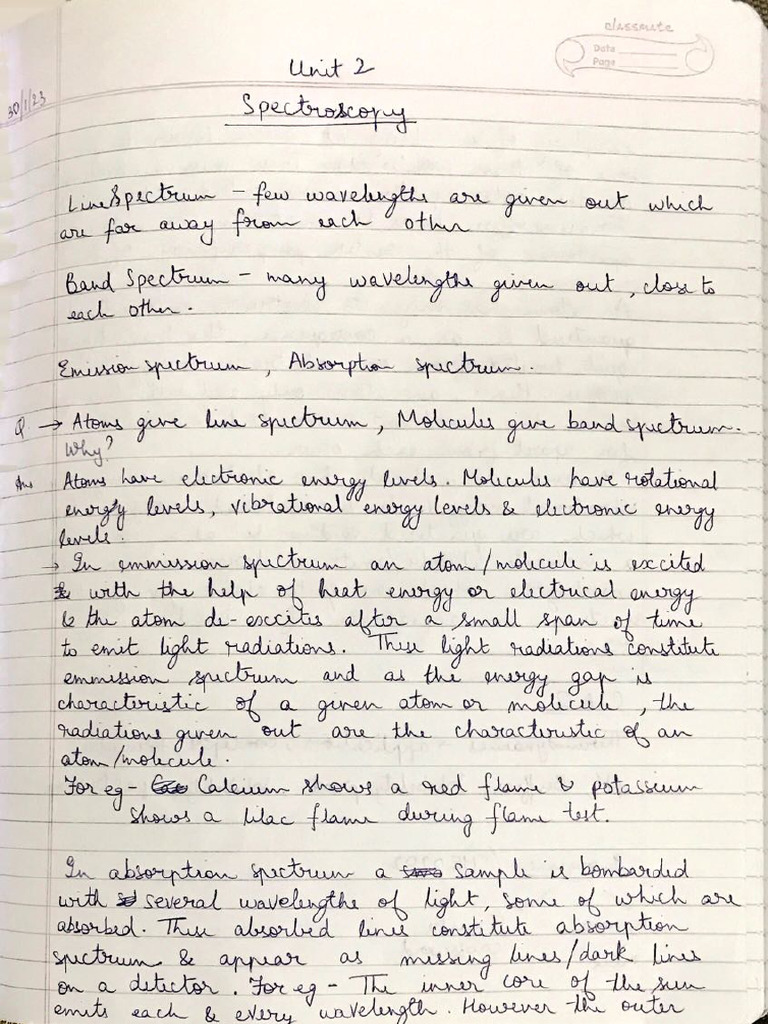 classmate
Date
Page
Unit 2
30/1/23
Spectroscopy
Line Spectrum - few wavelengths are given out which
are far away from each other
Band Spectrum - many wavelengths given out, close to
each other.
Emission spectrum, Absorption spectrum.
Q → Atoms give line spectrum, Molecules give band spectrum.
Why?
Ans Atoms have electronic energy levels. Molecules have rotational
energy levels, vibrational energy levels & electronic energy
levels.
→ In emmission spectrum an atom/molecule is excited
with the help of heat energy or electrical energy
& the atom de-excites after a small span of time
to emit light radiations. These light radiations constitute
emmission spectrum and as the energy gap is
characteristic of a given atom or molecule, the
radiations given out are the characteristic of an
atom/molecule.
For eg - Calcium shows a red flame & potassium
shows a lilac flame during flame test.
In absorption spectrum a sample is bombarded
with several wavelengths of light, some of which are
absorbed. These absorbed lines constitute absorption
spectrum & appear as missing lines/dark lines
on a detector. For eg - The inner core of the sun
emits each & every wavelength. However the outer